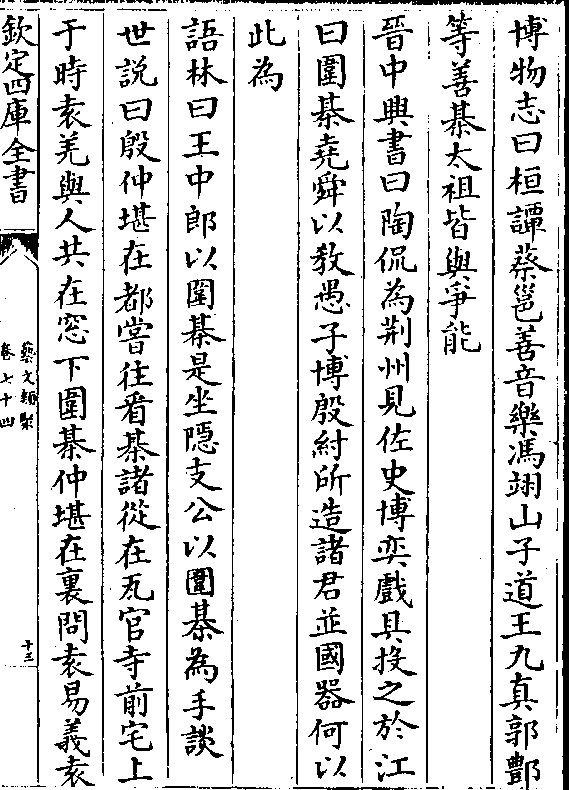 博物志曰桓譚蔡邕善音樂馮翊山子道王九真郭酆
等善棊太祖皆與爭能
晉中興書曰陶侃為荆州見佐史博奕戲具投之於江
曰圍棊堯舜以教愚子博殷紂所造諸君並國器何以
此為
語林曰王中郎以圍棊是坐隠支公以圍棊為手談
世説曰殷仲堪在都嘗往看棊諸從在瓦官寺前宅上
于時袁羌與人共在窓下圍棊仲堪在裏問袁易義袁
欽定四庫全書
藝文類聚
卷七十四
十三